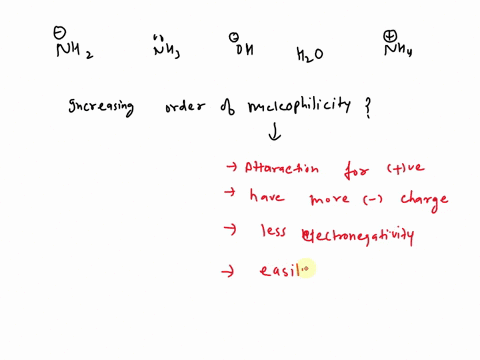 ⊖NH₂ N̈H₃ ⊖OH H₂O ⊕NH₄
Increasing order of nucleophilicity ?
↓
→ Attaraction for (+)ve
→ have more (-) charge
→ less electronegativity
→ easil